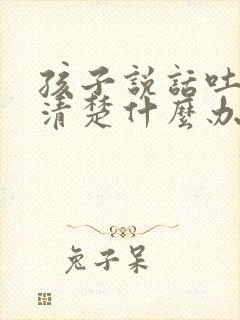 孩子説話吐
清楚什麽办
兔子呆